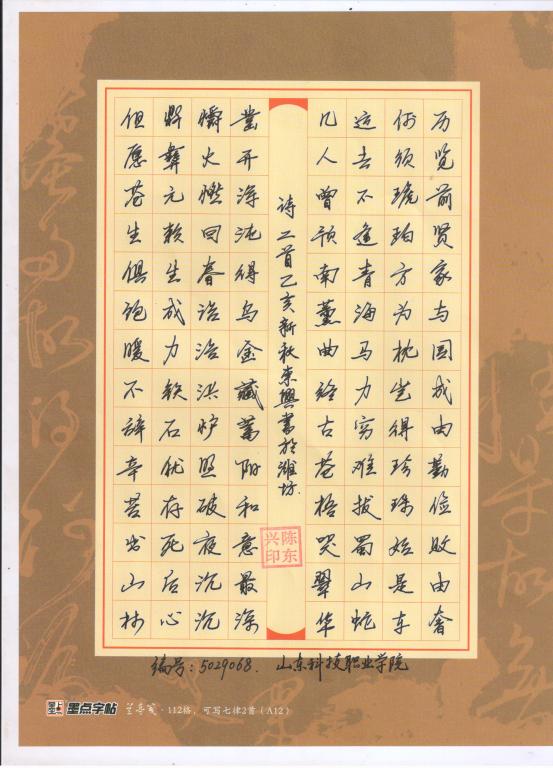 历览前贤家与国成由勤俭败由奢
何须琥珀方为枕岂得珍珠始是车
运去不逢青海马力穷难拔蜀山蛇
几人曾预南薰曲终古苍梧哭翠华
诗二首乙亥新秋东興書於潍坊
凿开浑沌得乌金藏蓄阳和意最深
爝火燃回春浩浩洪炉照破夜沉沉
鼎彝元赖生成力铁石犹存死后心
但愿苍生俱饱暖不辞辛苦出山林
陈东兴印
编号:5029068. 山东科技职业学院
墨点字帖 兰亭笺·112格,可写七律2首(A12)